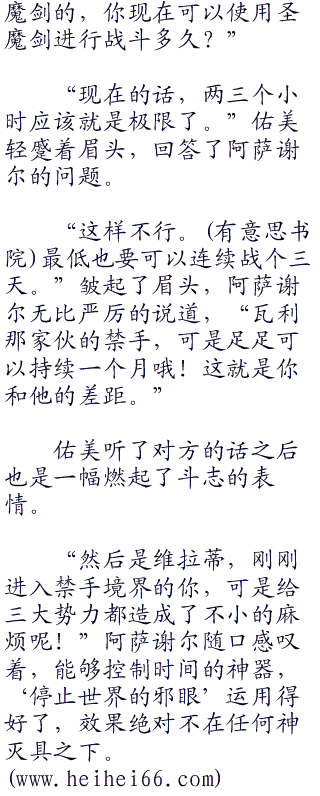 魔剑的，你现在可以使用圣
魔剑进行战斗多久？”
“现在的话，两三个小
时应该就是极限了。”佑美
轻蹙着眉头，回答了阿萨谢
尔的问题。
“这样不行。(有意思书
院)最低也要可以连续战个三
天。”皱起了眉头，阿萨谢
尔无比严厉的说道，“瓦利
那家伙的禁手，可是足足可
以持续一个月哦！这就是你
和他的差距。”
佑美听了对方的话之后
也是一幅燃起了斗志的表
情。
“然后是维拉蒂，刚刚
进入禁手境界的你，可是给
三大势力都造成了不小的麻
烦呢！”阿萨谢尔随口感叹
着，能够控制时间的神器，
‘停止世界的邪眼’运用得
好了，效果绝对不在任何神
灭具之下。
(www.heihei66.com)